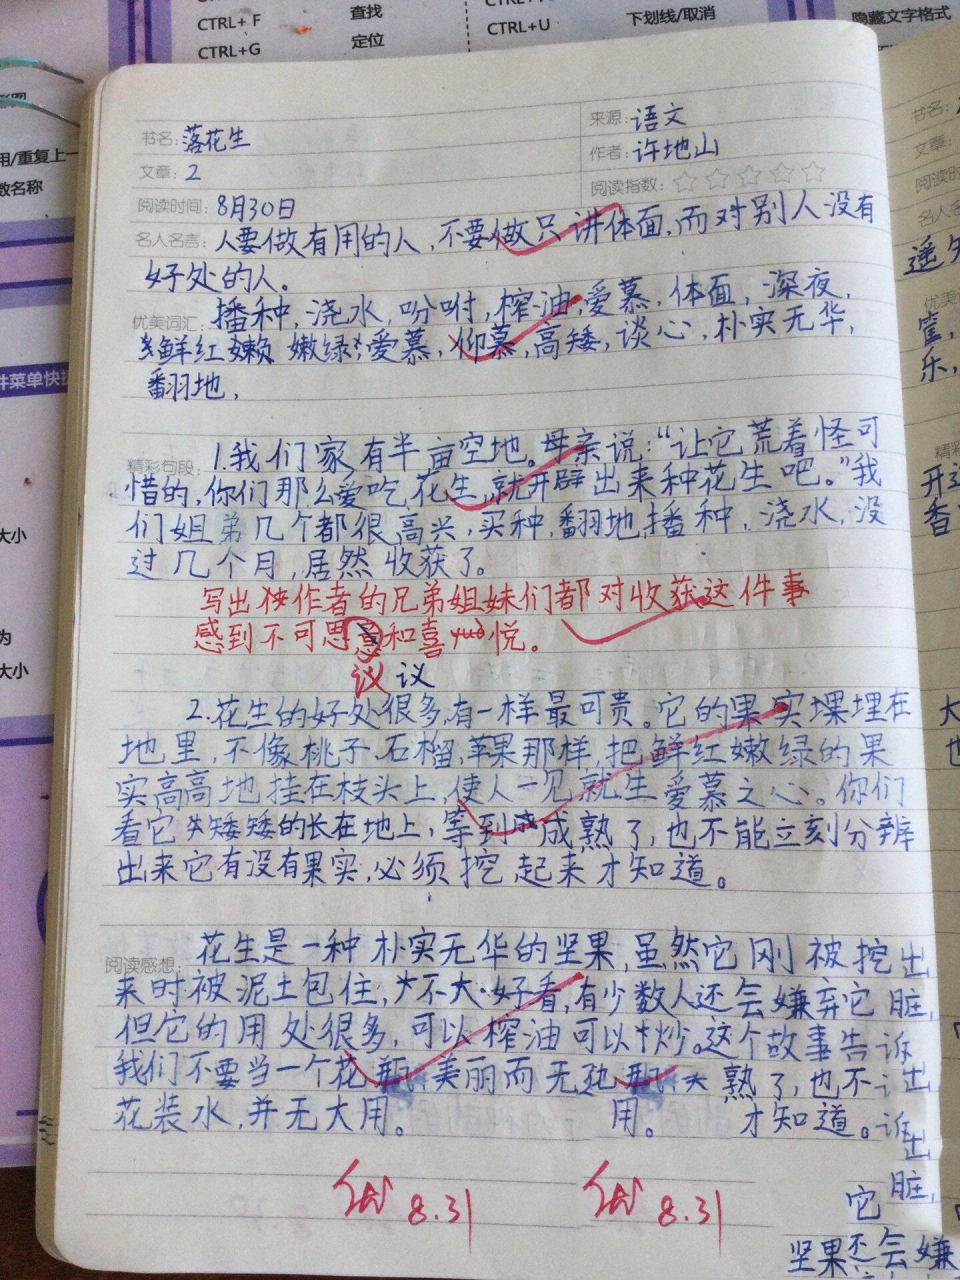 CTRL+F 查找
CTRL+G 定位
CTRL+U 下划线/取消
隐藏文字格式
用/重复上一
数名称
件菜单快捷
大小
为
大小
书名: 落花生
来源: 语文
文章: 2
作者: 许地山
阅读时间: 8月30日
阅读指数:
名人名言: 人要做有用的人,不要做只讲体面,而对别人没有
好处的人。
优美词汇: 播种,浇水,吩咐,榨油,爱慕,体面,深夜,
鲜红嫩 嫩绿,爱慕,仰慕,高矮,谈心,朴实无华,
翻地,
精彩句段: 1.我们家有半亩空地。母亲说:“让它荒着怪可
惜的,你们那么爱吃花生,就开辟出来种花生吧。”我
们姐弟几个都很高兴,买种,翻地,播种,浇水,没
过几个月,居然收获了。
写出 作者的兄弟姐妹们都对收获这件事
感到不可思 和喜yuè悦。
议 议
2.花生的好处很多,有一样最可贵。它的果实 埋在
地里,不像桃子,石榴,苹果那样,把鲜红嫩绿的果
实高高地挂在枝头上,使人一见就生爱慕之心。你们
看它矮矮的长在地上,等到成熟了,也不能立刻分辨
出来它有没有果实,必须挖起来才知道。
阅读感想: 花生是一种朴实无华的坚果,虽然它刚被挖出
来时被泥土包住,不大好看,有少数人还会嫌弃它脏,
但它的用处很多,可以榨油可以炒。这个故事告诉
我们不要当一个花瓶,美丽而无 熟了,也不 出
花装水,并无大用。 用。 才知道。诉
出
脏,
它
坚果 会嫌
优 8.31 优 8.31
书名:
文章:
阅读时
名人名
遥
优美词
乐,
精彩
开
香
大
也